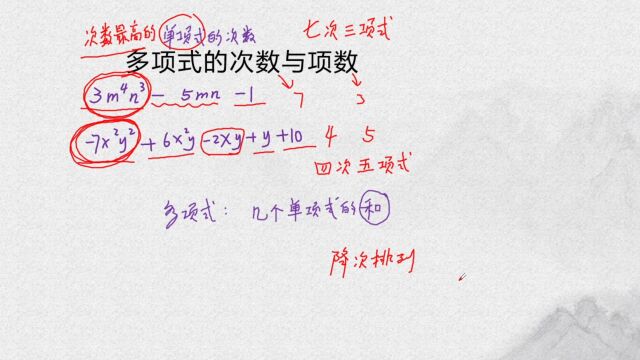 次数最高的 单项式的次数 七次三项式
多项式的次数与项数
3m⁴n³ - 5mn - 1 7 3
-7x²y² + 6x²y - 2xy + y + 10 4 5
四次五项式
多项式: 几个单项式的和
降次排列